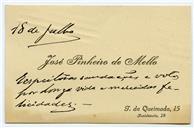 18 de Julho
José Pinheiro de Mello
Respeitosas saudações e votos
por longa vida e merecidas fe-
licidades.
T. da Queimada, 15
Residencia, 28